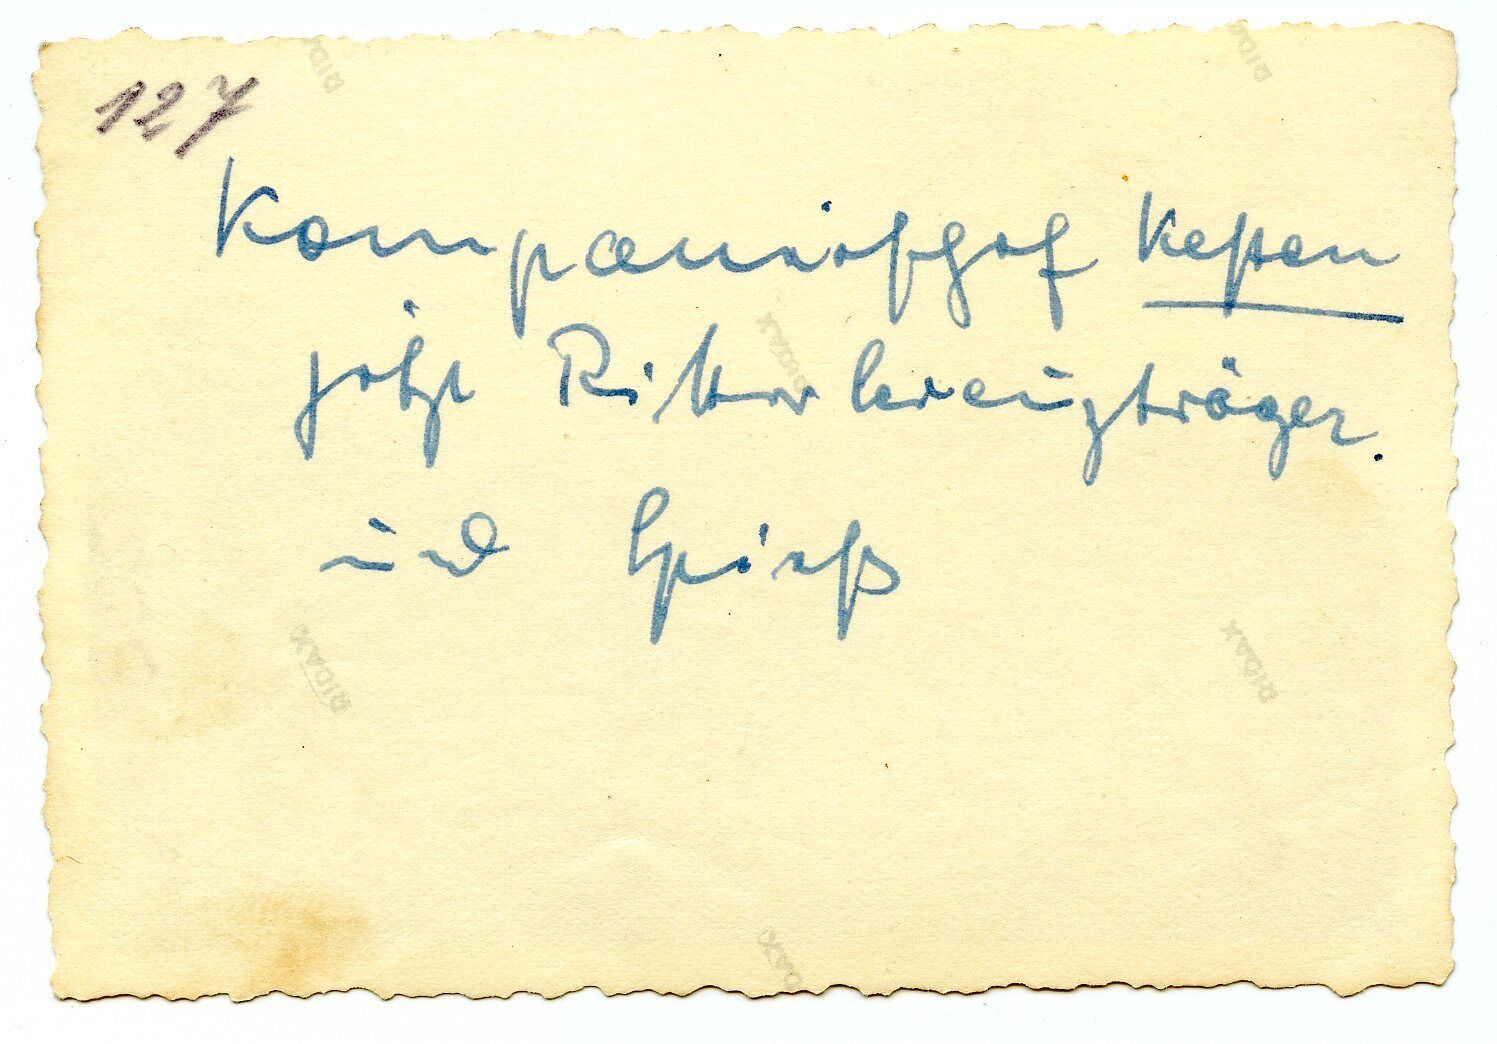 127
Kompaniechef Kesten
jetzt Ritterkreuzträger.
und Spieß
RIDAX
RIDAX
RIDAX
RIDAX
RIDAX